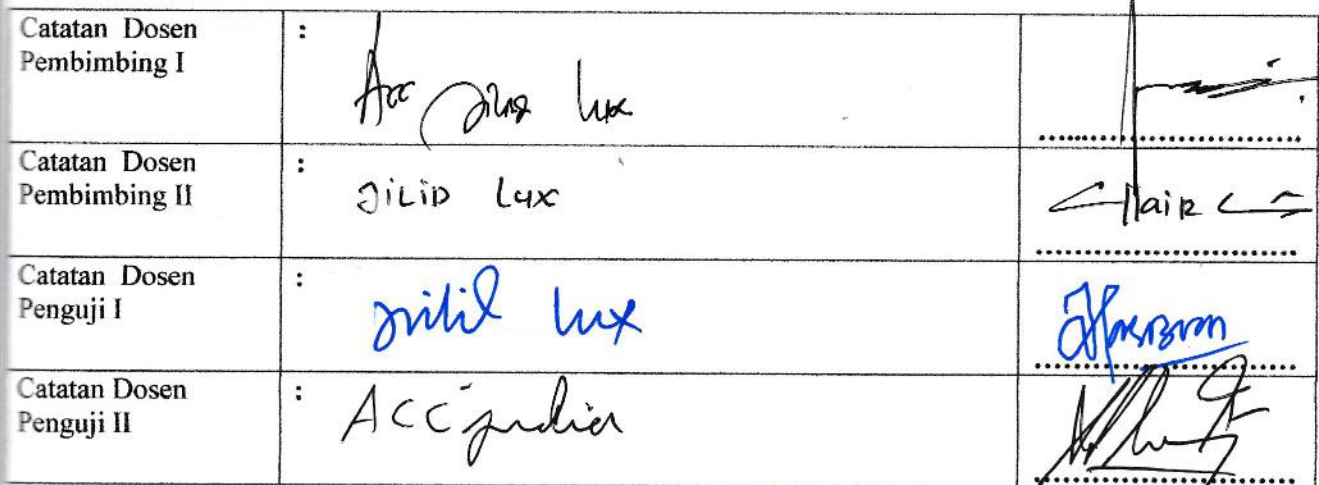 Catatan Dosen
Pembimbing I
:
Acc Jilid lux
Catatan Dosen
Pembimbing II
:
JILID Lux
Catatan Dosen
Penguji I
:
Jilid lux
Catatan Dosen
Penguji II
:
ACC